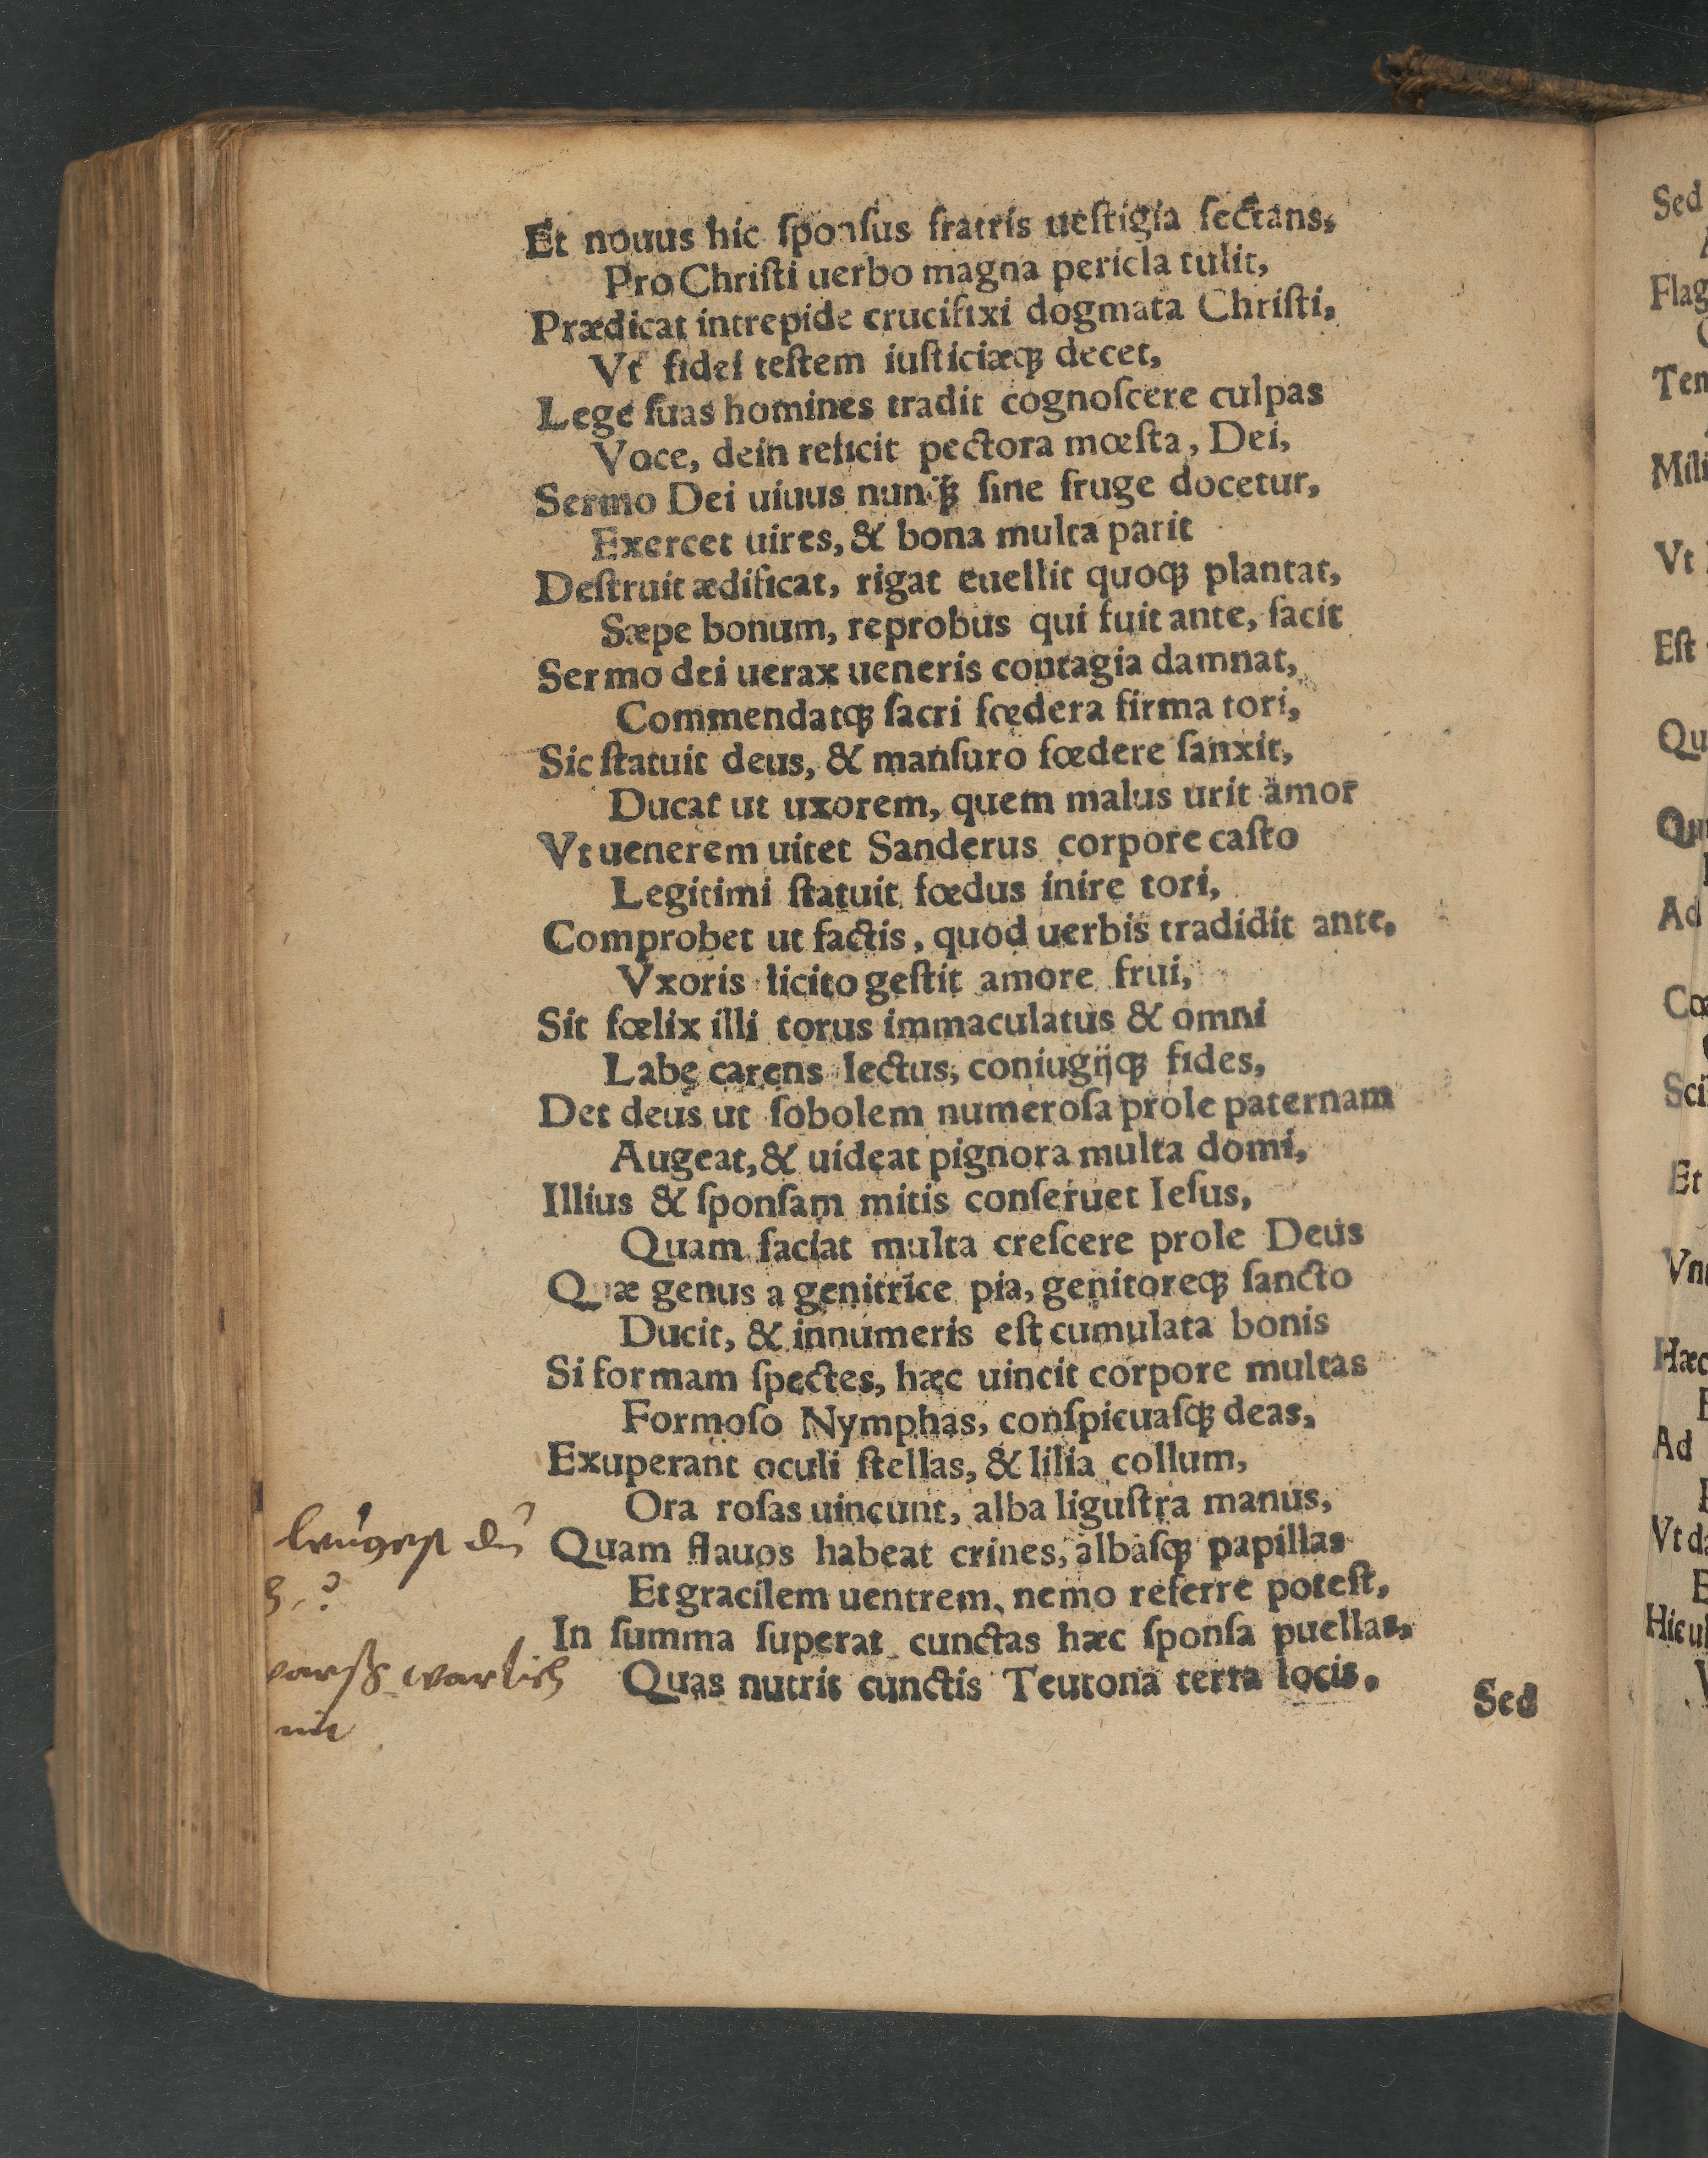 Et nouus hic ſponſus fratris ueſtigia ſectans,
Pro Chriſti uerbo magna pericla tulit,
Prædicat intrepide crucifixi dogmata Chriſti,
Vt fidei teſtem iuſticiæq́; decet,
Lege ſuas homines tradit cognoſcere culpas
Voce, dein reficit pectora mœſta, Dei,
Sermo Dei uiuus nunq̃ȝ ſine fruge docetur,
Exercet uires, & bona multa parit
Deſtruit ædificat, rigat euellit quoqȝ plantat,
Sæpe bonum, reprobus qui fuit ante, facit
Sermo dei uerax ueneris contagia damnat,
Commendatqȝ ſacri fœdera firma tori,
Sic ſtatuit deus, & manſuro fœdere ſanxit,
Ducat ut uxorem, quem malus urit amor
Vt uenerem uitet Sanderus corpore caſto
Legitimi ſtatuit fœdus inire tori,
Comprobet ut factis, quod uerbis tradidit ante,
Vxoris licito geſtit amore frui,
Sit fœlix illi torus immaculatus & omni
Labe carens lectus, coniugijqȝ fides,
Det deus ut ſobolem numeroſa prole paternam
Augeat, & uideat pignora multa domi,
Illius & ſponſam mitis conſeruet Ieſus,
Quam faciat multa creſcere prole Deus
Quæ genus a genitrice pia, genitoreqȝ ſancto
Ducit, & innumeris eſt cumulata bonis
Si formam ſpectes, hæc uincit corpore multas
Formoſo Nymphas, conſpicuaſqȝ deas,
Exuperant oculi ſtellas, & lilia collum,
Ora roſas uincunt, alba liguſtra manus,
leugeſt du
Quam flauos habeat crines, albaſqȝ papillas
Et gracilem uentrem, nemo referre poteſt,
In ſumma ſuperat cunctas hæc ſponſa puellas,
warlich
Quas nutrit cunctis Teutona terra locis.
nit
Sed